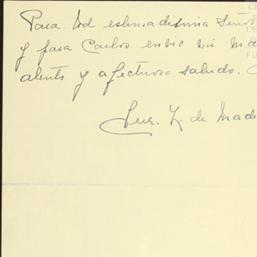 Para Ud estimadísima Seño
y para Carlos envio mi m
atento y afectuoso saludo.
Luz. Z. de Made